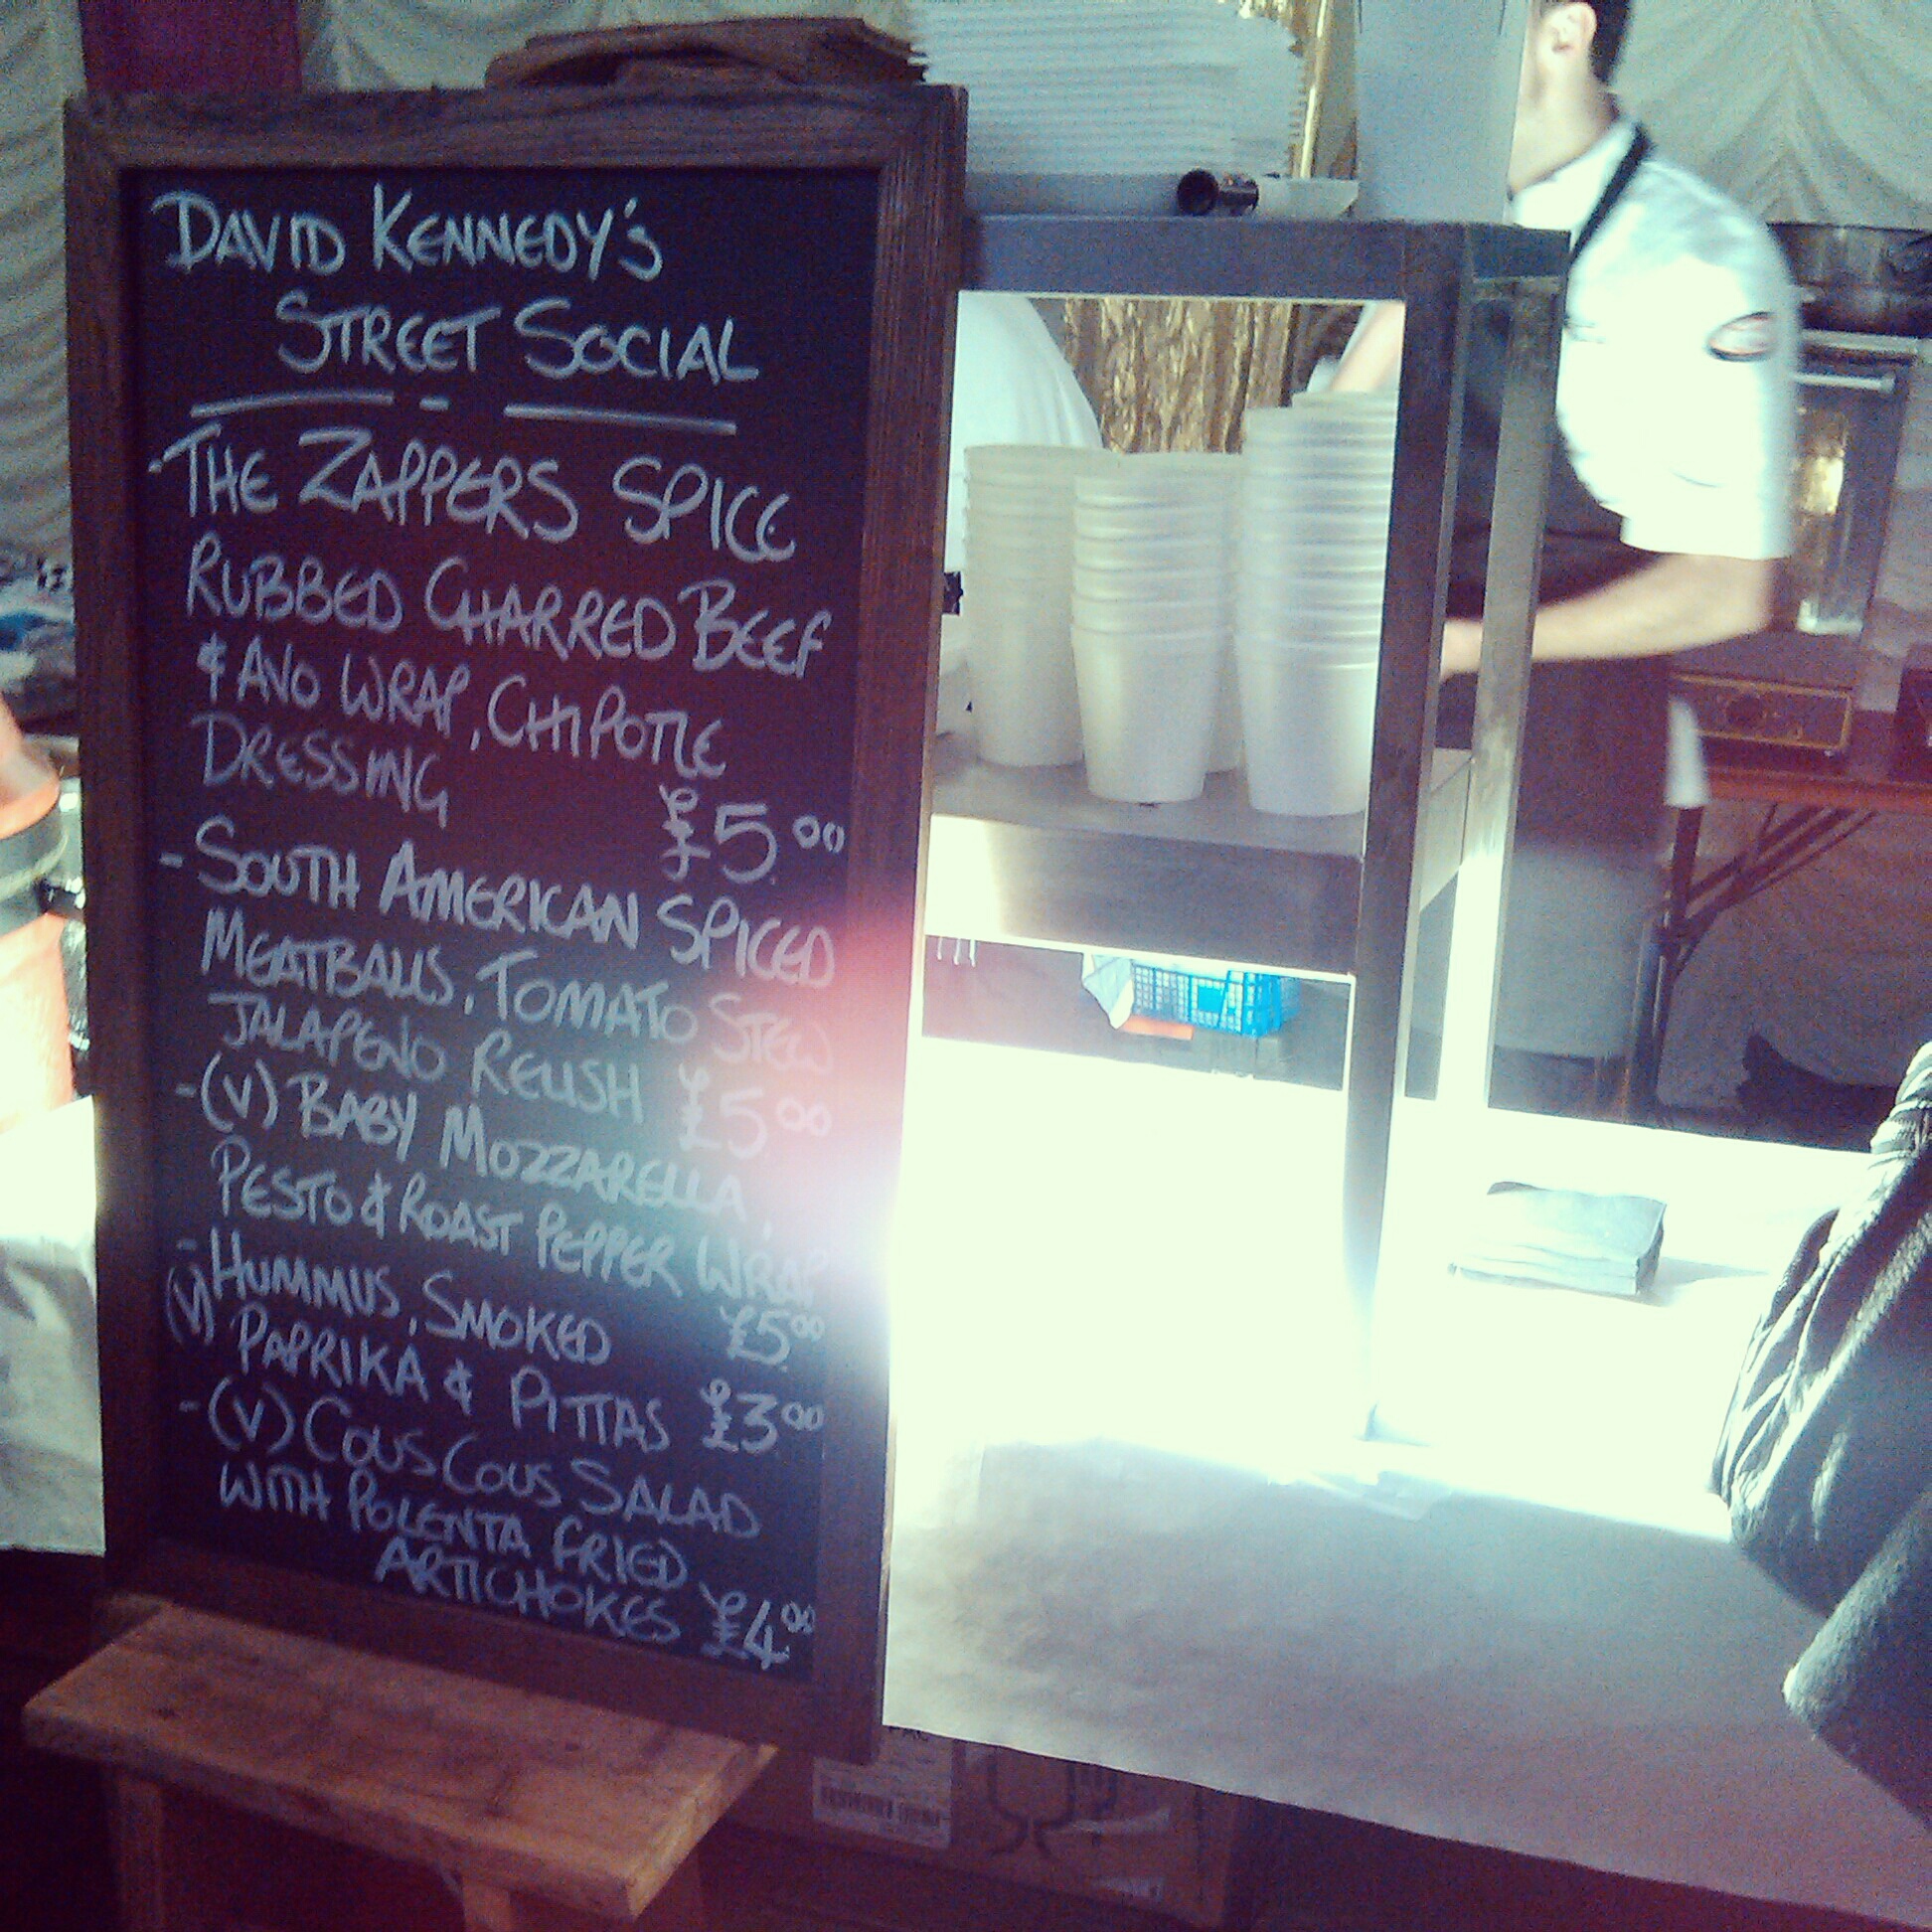 DAVID KENNEDY'S
STREET SOCIAL
- THE ZAPPERS SPICE
RUBBED CHARRED BEEF
& AVO WRAP, CHIPOTLE
DRESSING £5.00
- SOUTH AMERICAN SPICED
MEATBALLS, TOMATO STEW
JALAPENO RELISH £5.00
- (V) BABY MOZZARELLA,
PESTO & ROAST PEPPER WRAP
£5.00
- HUMMUS, SMOKED
(V) PAPRIKA & PITTAS £3.00
- (V) COUS COUS SALAD
WITH POLENTA FRIED
ARTICHOKES £4.00